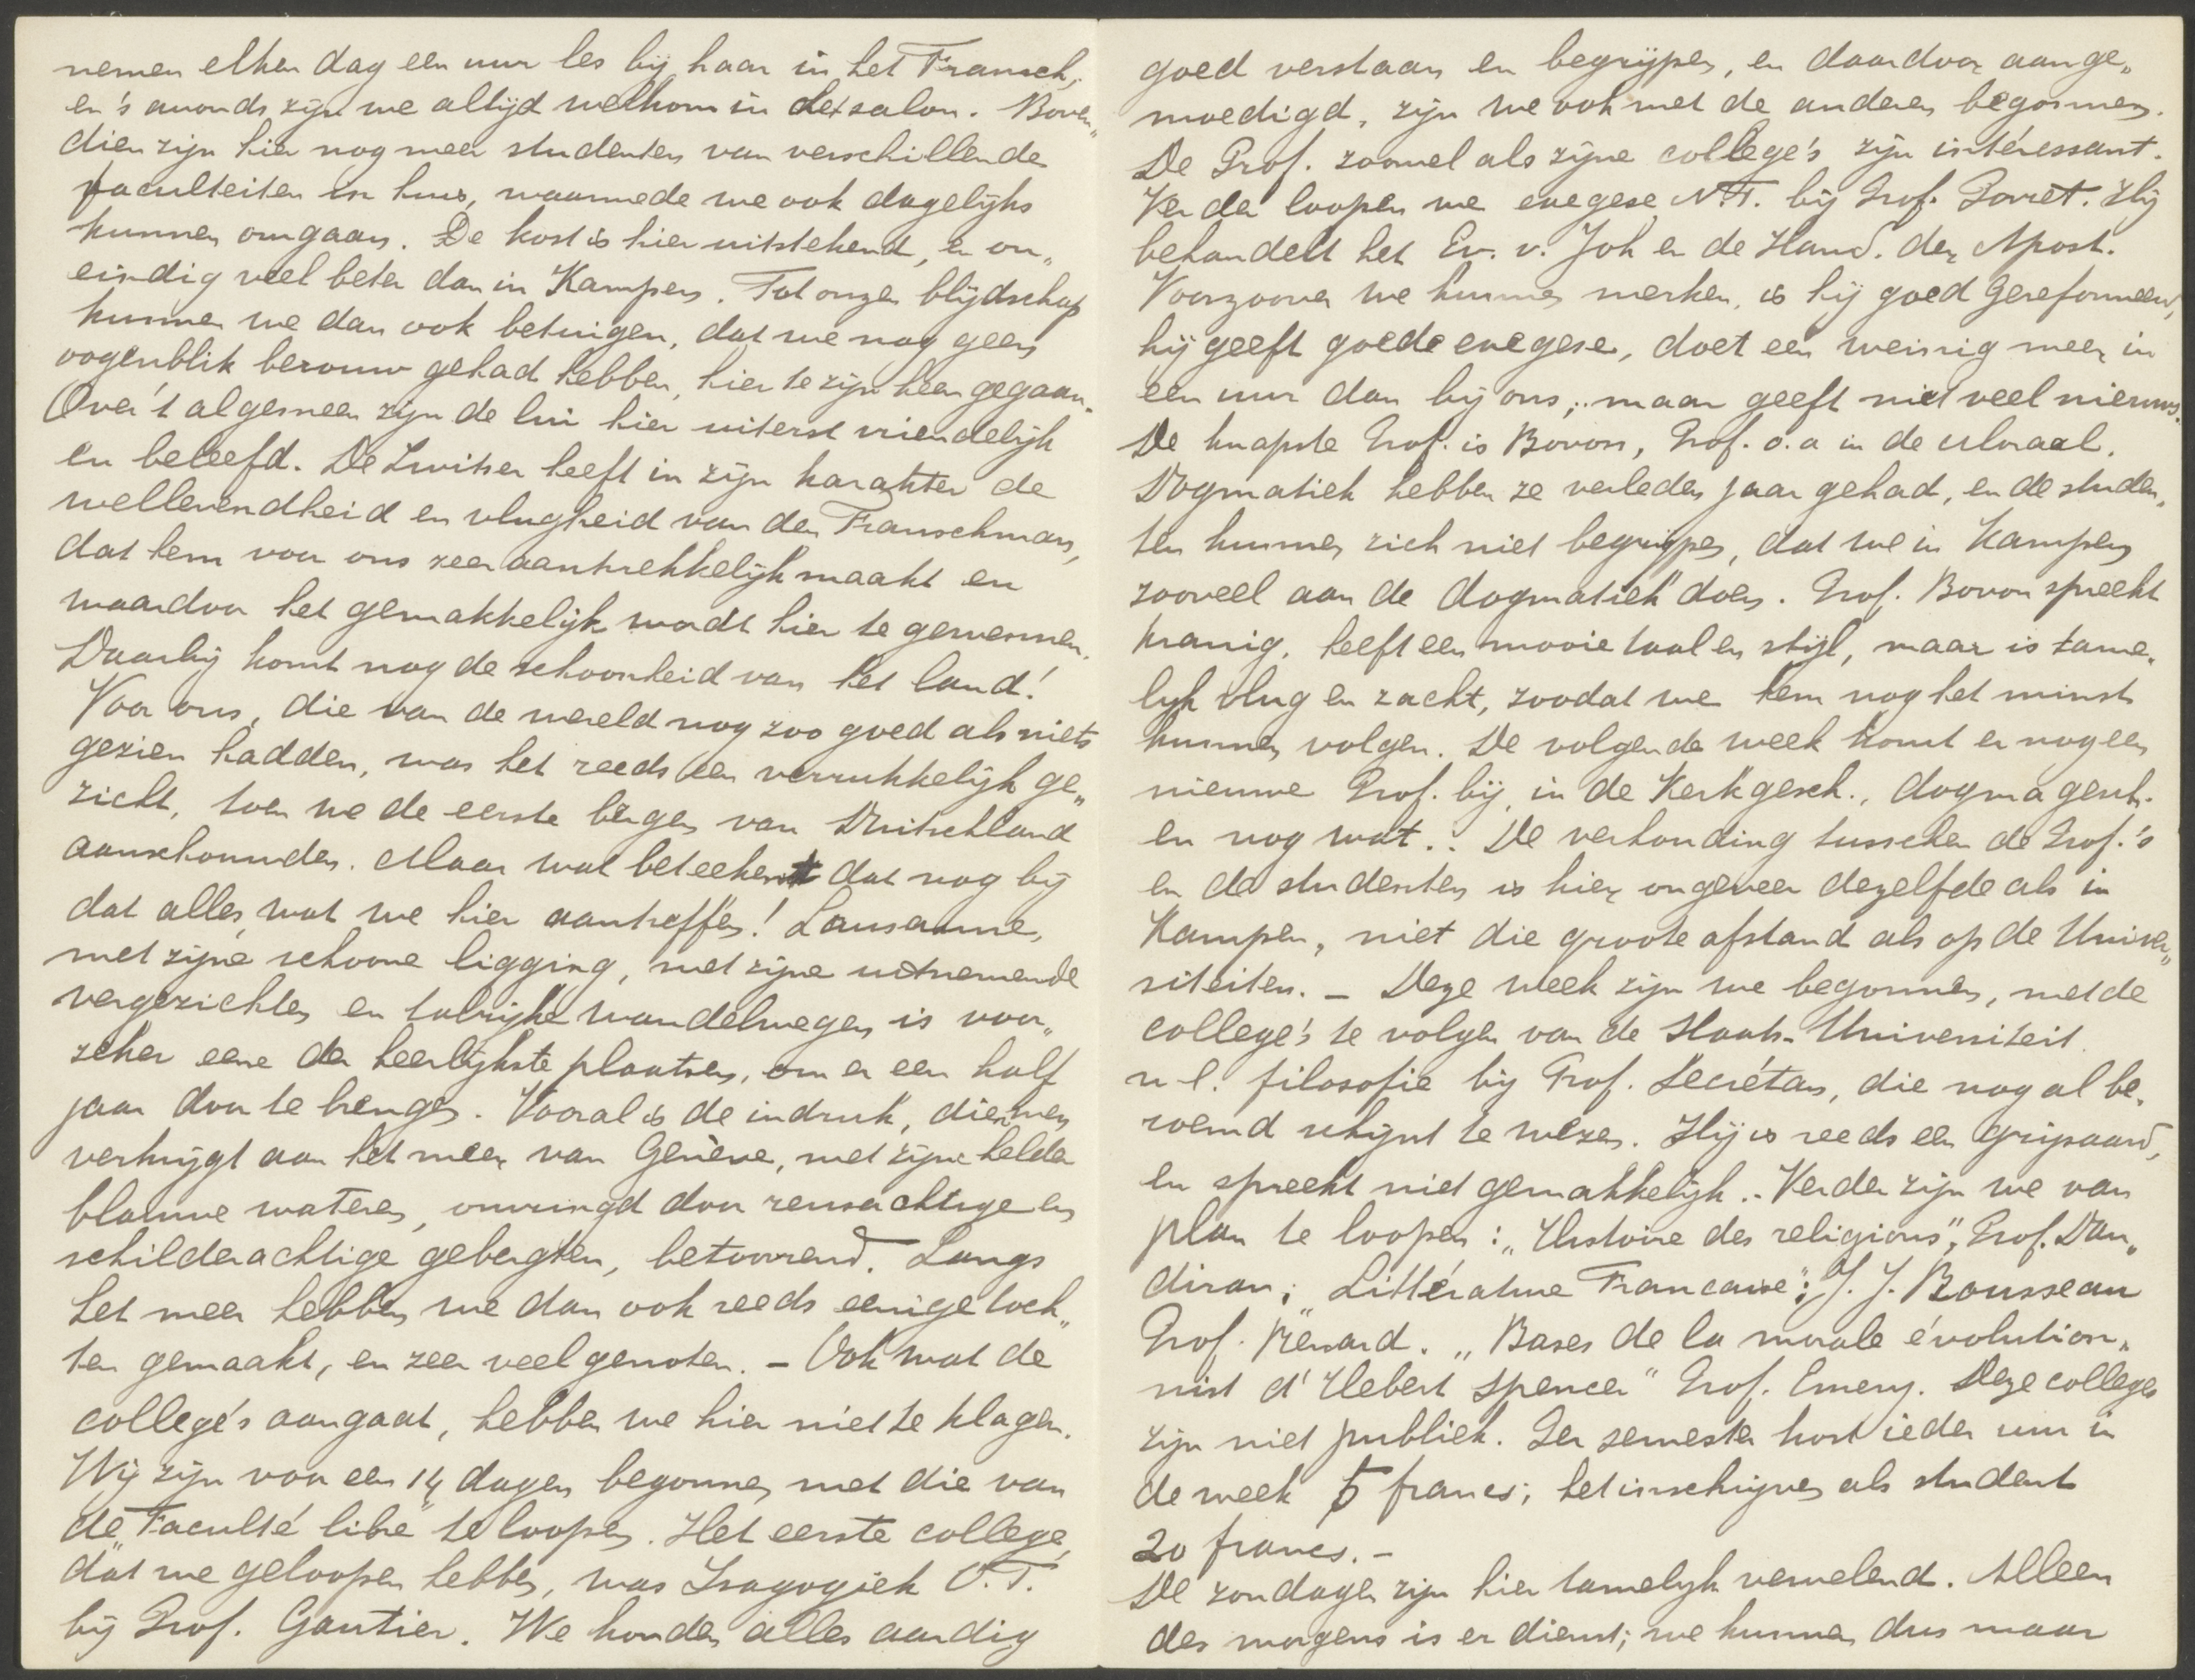 nemen elken dag een uur les bij haar in het Fransch,
en 's avonds zijn we altijd welkom in het salon. Boven„
dien zijn hier nog meer studenten van verschillende
faculteiten in huis, waarmede we ook dagelijks
kunnen omgaan. De kost is hier uitstekend, en on„
eindig veel beter dan in Kampen. Tot onze blijdschap
kunnen we dan ook betuigen, dat we nog geen
oogenblik berouw gehad hebben, hier te zijn heen gegaan.
Over 't algemeen zijn de lui hier uiterst vriendelijk
en beleefd. De Zwitser heeft in zijn karakter de
wellevendheid en vlugheid van den Franschman,
dat hem voor ons zeer aantrekkelijk maakt en
waardoor het gemakkelijk wordt hier te gewennen.
Daarbij komt nog de schoonheid van het land!
Voor ons, die van de wereld nog zoo goed als niets
gezien hadden, was het reeds een verrukkelijk ge„
zicht, toen we de eerste bergen van Duitschland
aanschouwden. Maar wat beteekent dat nog bij
dat alles, wat we hier aantreffen! Lausanne,
met zijne schoone ligging, met zijne uitnemende
vergezichten en talrijke wandelwegen is voor„
zeker eene der heerlijkste plaatsen, om er een half
jaar door te brengen. Vooral is de indruk, dien men
verkrijgt aan het meer van Genève, met zijne helder
blauwe wateren, omringd door reusachtige en
schilderachtige gebergten, betoverend. Langs
het meer hebben we dan ook reeds eenige toch„
ten gemaakt, en zeer veel genoten. – Ook wat de
college's aangaat, hebben we hier niet te klagen.
Wij zijn voor een 14 dagen begonnen met die van
de „Faculté libre" te loopen. Het eerste college,
dat we geloopen hebben, was Isagogiek O.T.
bij Prof. Gautier. We konden alles aardig
goed verstaan en begrijpen, en daardoor aange„
moedigd, zijn we ook met de anderen begonnen.
De Prof. zoowel als zijne college's zijn intéressant.
Verder loopen we exegese N.T. bij Prof. Porret. Hij
behandelt het Ev. v. Joh en de Hand. der Apost.
Voorzoover we kunnen merken, is hij goed Gereformeerd,
hij geeft goede exegese, doet een weinig meer in
een uur dan bij ons, maar geeft niet veel nieuws.
De knapste Prof. is Bovon, Prof. o.a in de Moraal.
Dogmatiek hebben ze verleden jaar gehad, en de studen„
ten kunnen zich niet begrijpen, dat we in Kampen
zooveel aan de dogmatiek doen. Prof. Bovon spreekt
kranig, heeft een mooie taal en stijl, maar is tame„
lijk vlug en zacht, zoodat we hem nog het minst
kunnen volgen. De volgende week komt er nog een
nieuwe Prof. bij, in de Kerkgesch., dogmagesch.
en nog wat.. De verhouding tusschen de Prof.'s
en de studenten is hier ongeveer dezelfde als in
Kampen, niet die groote afstand als op de Univer„
siteiten. – Deze week zijn we begonnen, met de
college's te volgen van de Staats-Universiteit
n l. filosofie bij Prof. Secrétan, die nog al be„
roemd schijnt te wezen. Hij is reeds een grijsaard,
en spreekt niet gemakkelijk.. Verder zijn we van
plan te loopen: „Histoire des religions", Prof. Dan„
diran; „Littérature Francaise"; J. J. Rousseau
Prof. Renard. „Bases de la morale évolution„
nist d' Hebert Spencer" Prof. Emery. Deze colleges
zijn niet publiek. Per semester kost ieder uur in
de week 5 francs; het inschrijven als student
20 francs. –
De zondagen zijn hier tamelijk vervelend. Alleen
des morgens is er dienst; we kunnen dus maar